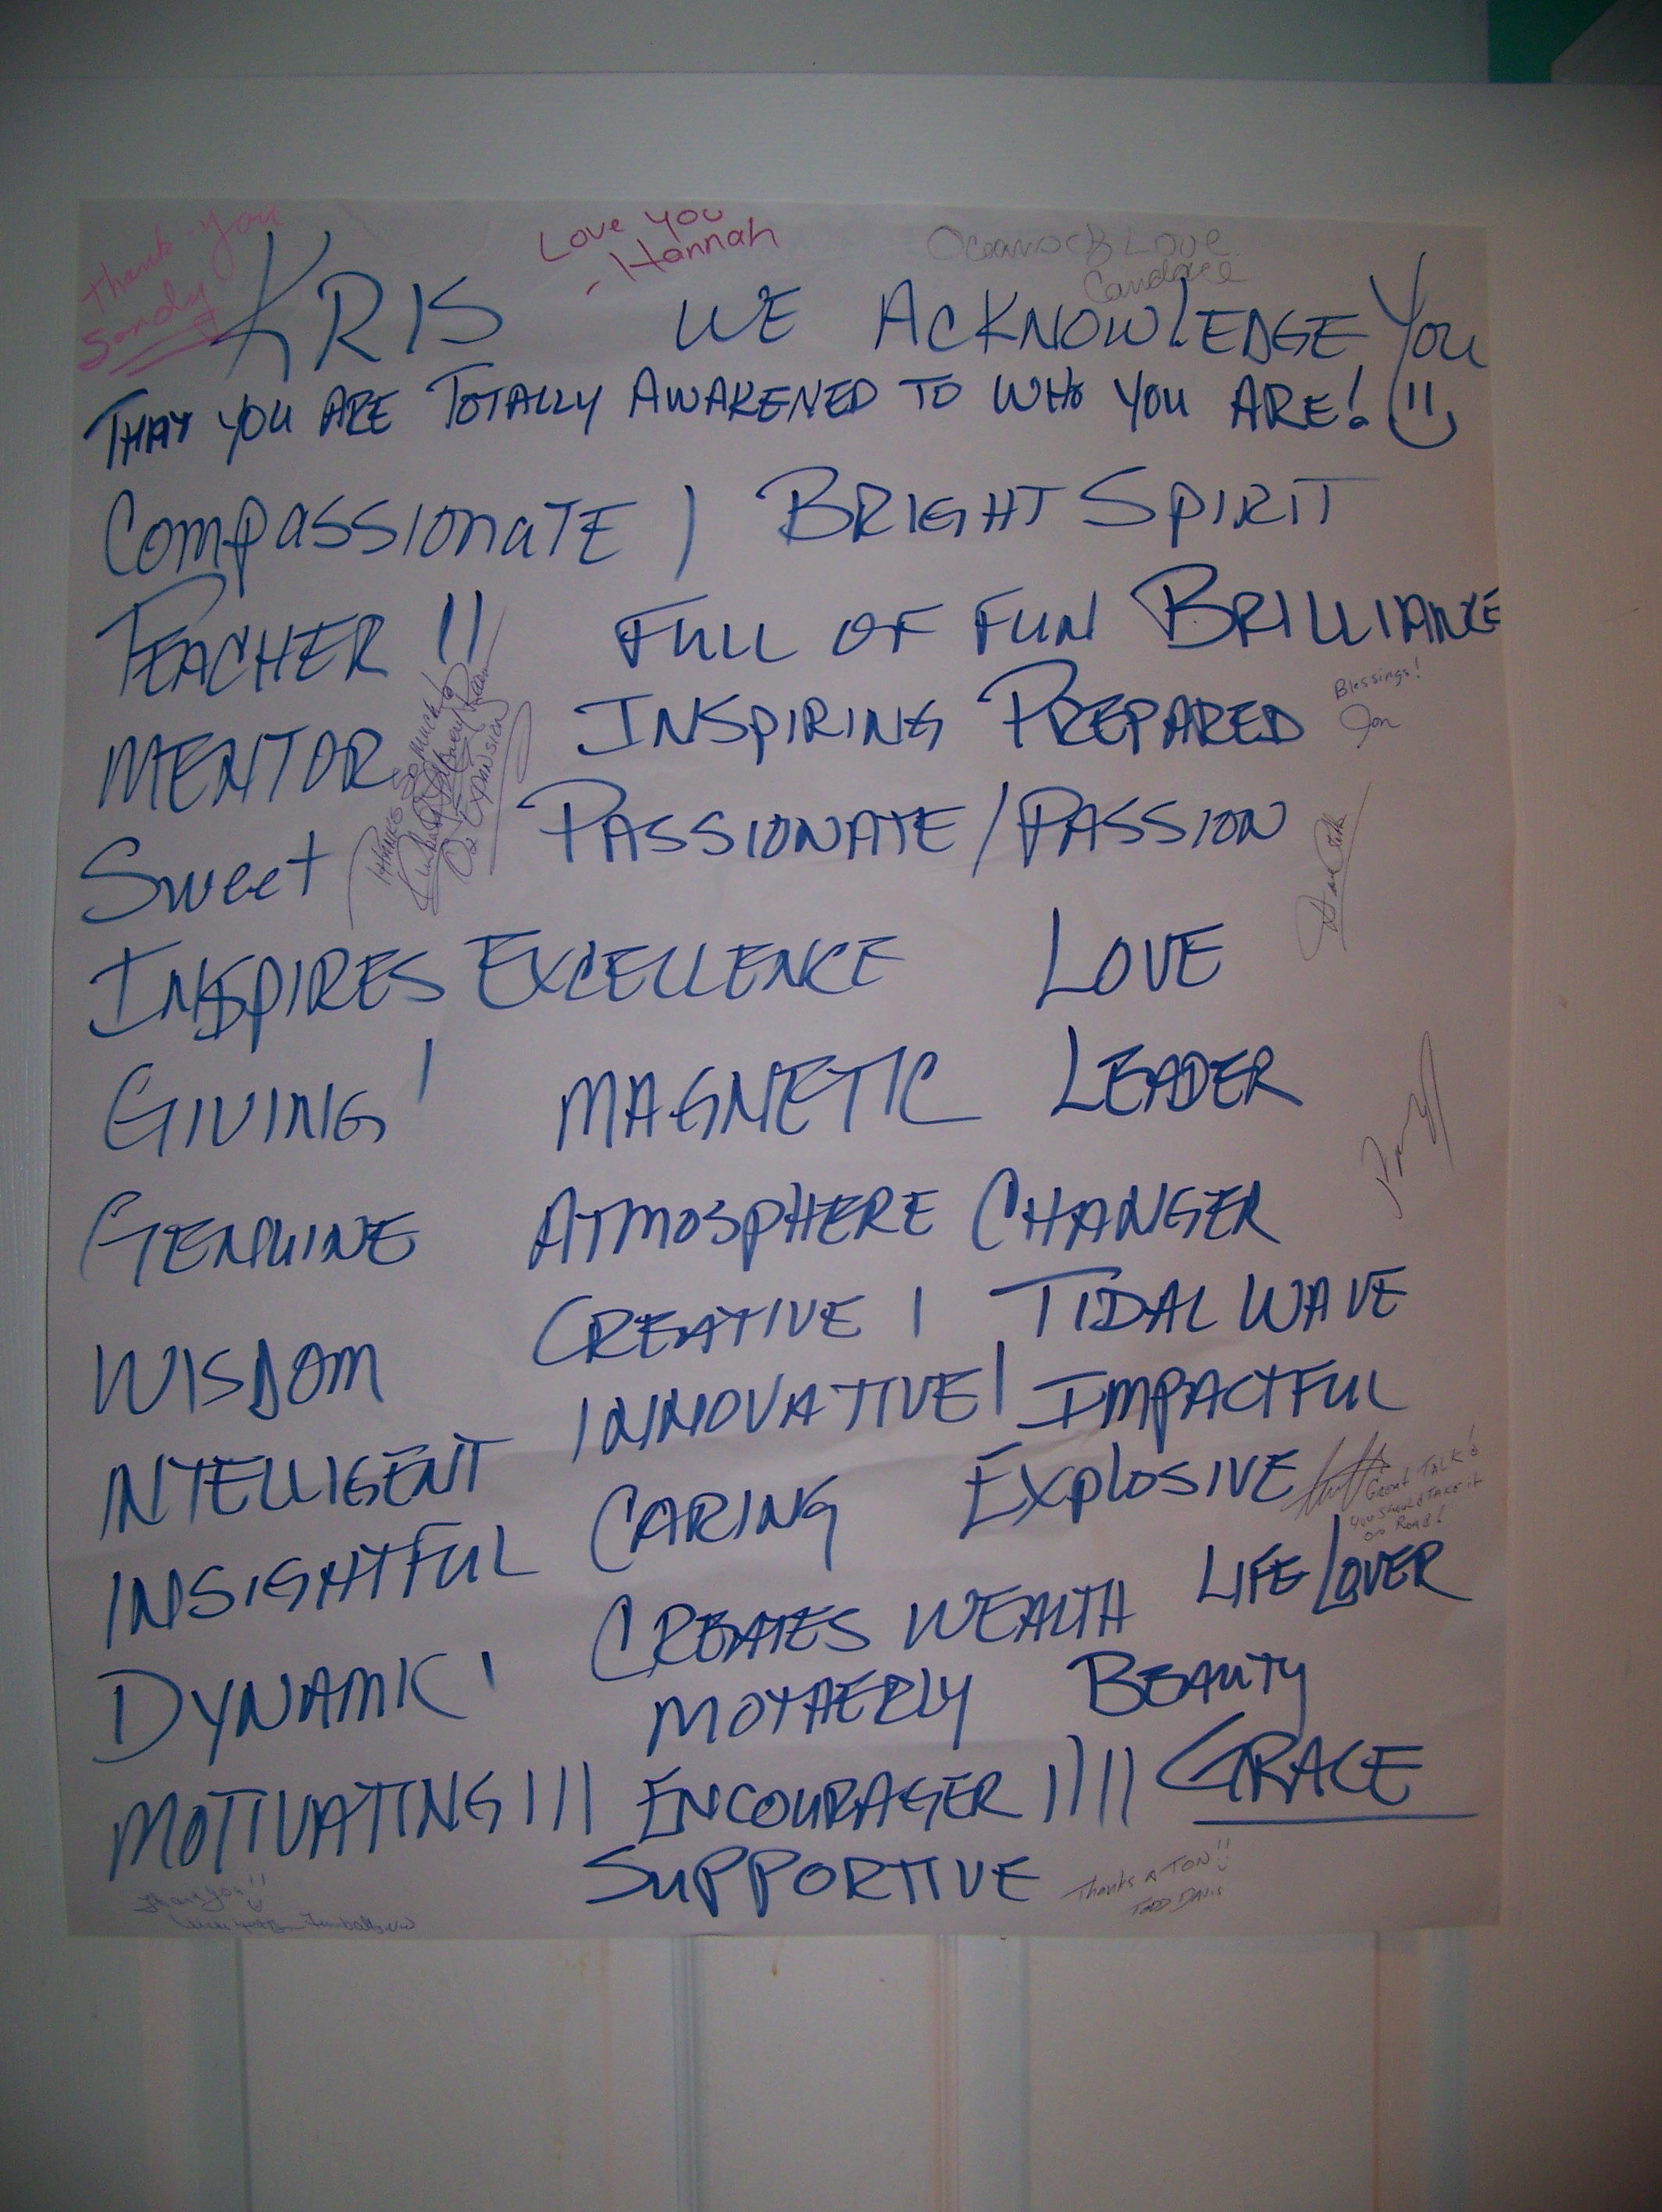 Thank you
Sandy
Love you
- Hannah
Love
Candace
KRIS WE ACKNOWLEDGE YOU
THAT YOU ARE TOTALLY AWAKENED TO WHO YOU ARE!
COMPASSIONATE | BRIGHT SPIRIT
TEACHER || FULL OF FUN BRILLIANCE
MENTOR INSPIRING PREPARED
Blessings!
Jon
THANKS SO MUCH!
O2 EXPANSION
Sweet PASSIONATE/PASSION
INSPIRES EXCELLENCE LOVE
GIVING | MAGNETIC LEADER
GENUINE ATMOSPHERE CHANGER
WISDOM CREATIVE | TIDAL WAVE
INTELLIGENT INNOVATIVE | IMPACTFUL
INSIGHTFUL CARING EXPLOSIVE
GREAT TALK!
YOU SHOULD TAKE it
ON ROAD!
DYNAMIC | CREATES WEALTH LIFE LOVER
MOTHERLY BEAUTY
MOTIVATING ||| ENCOURAGER ||||| GRACE
SUPPORTIVE
Thanks A TON!!
TODD DAVIS
Thank you!!